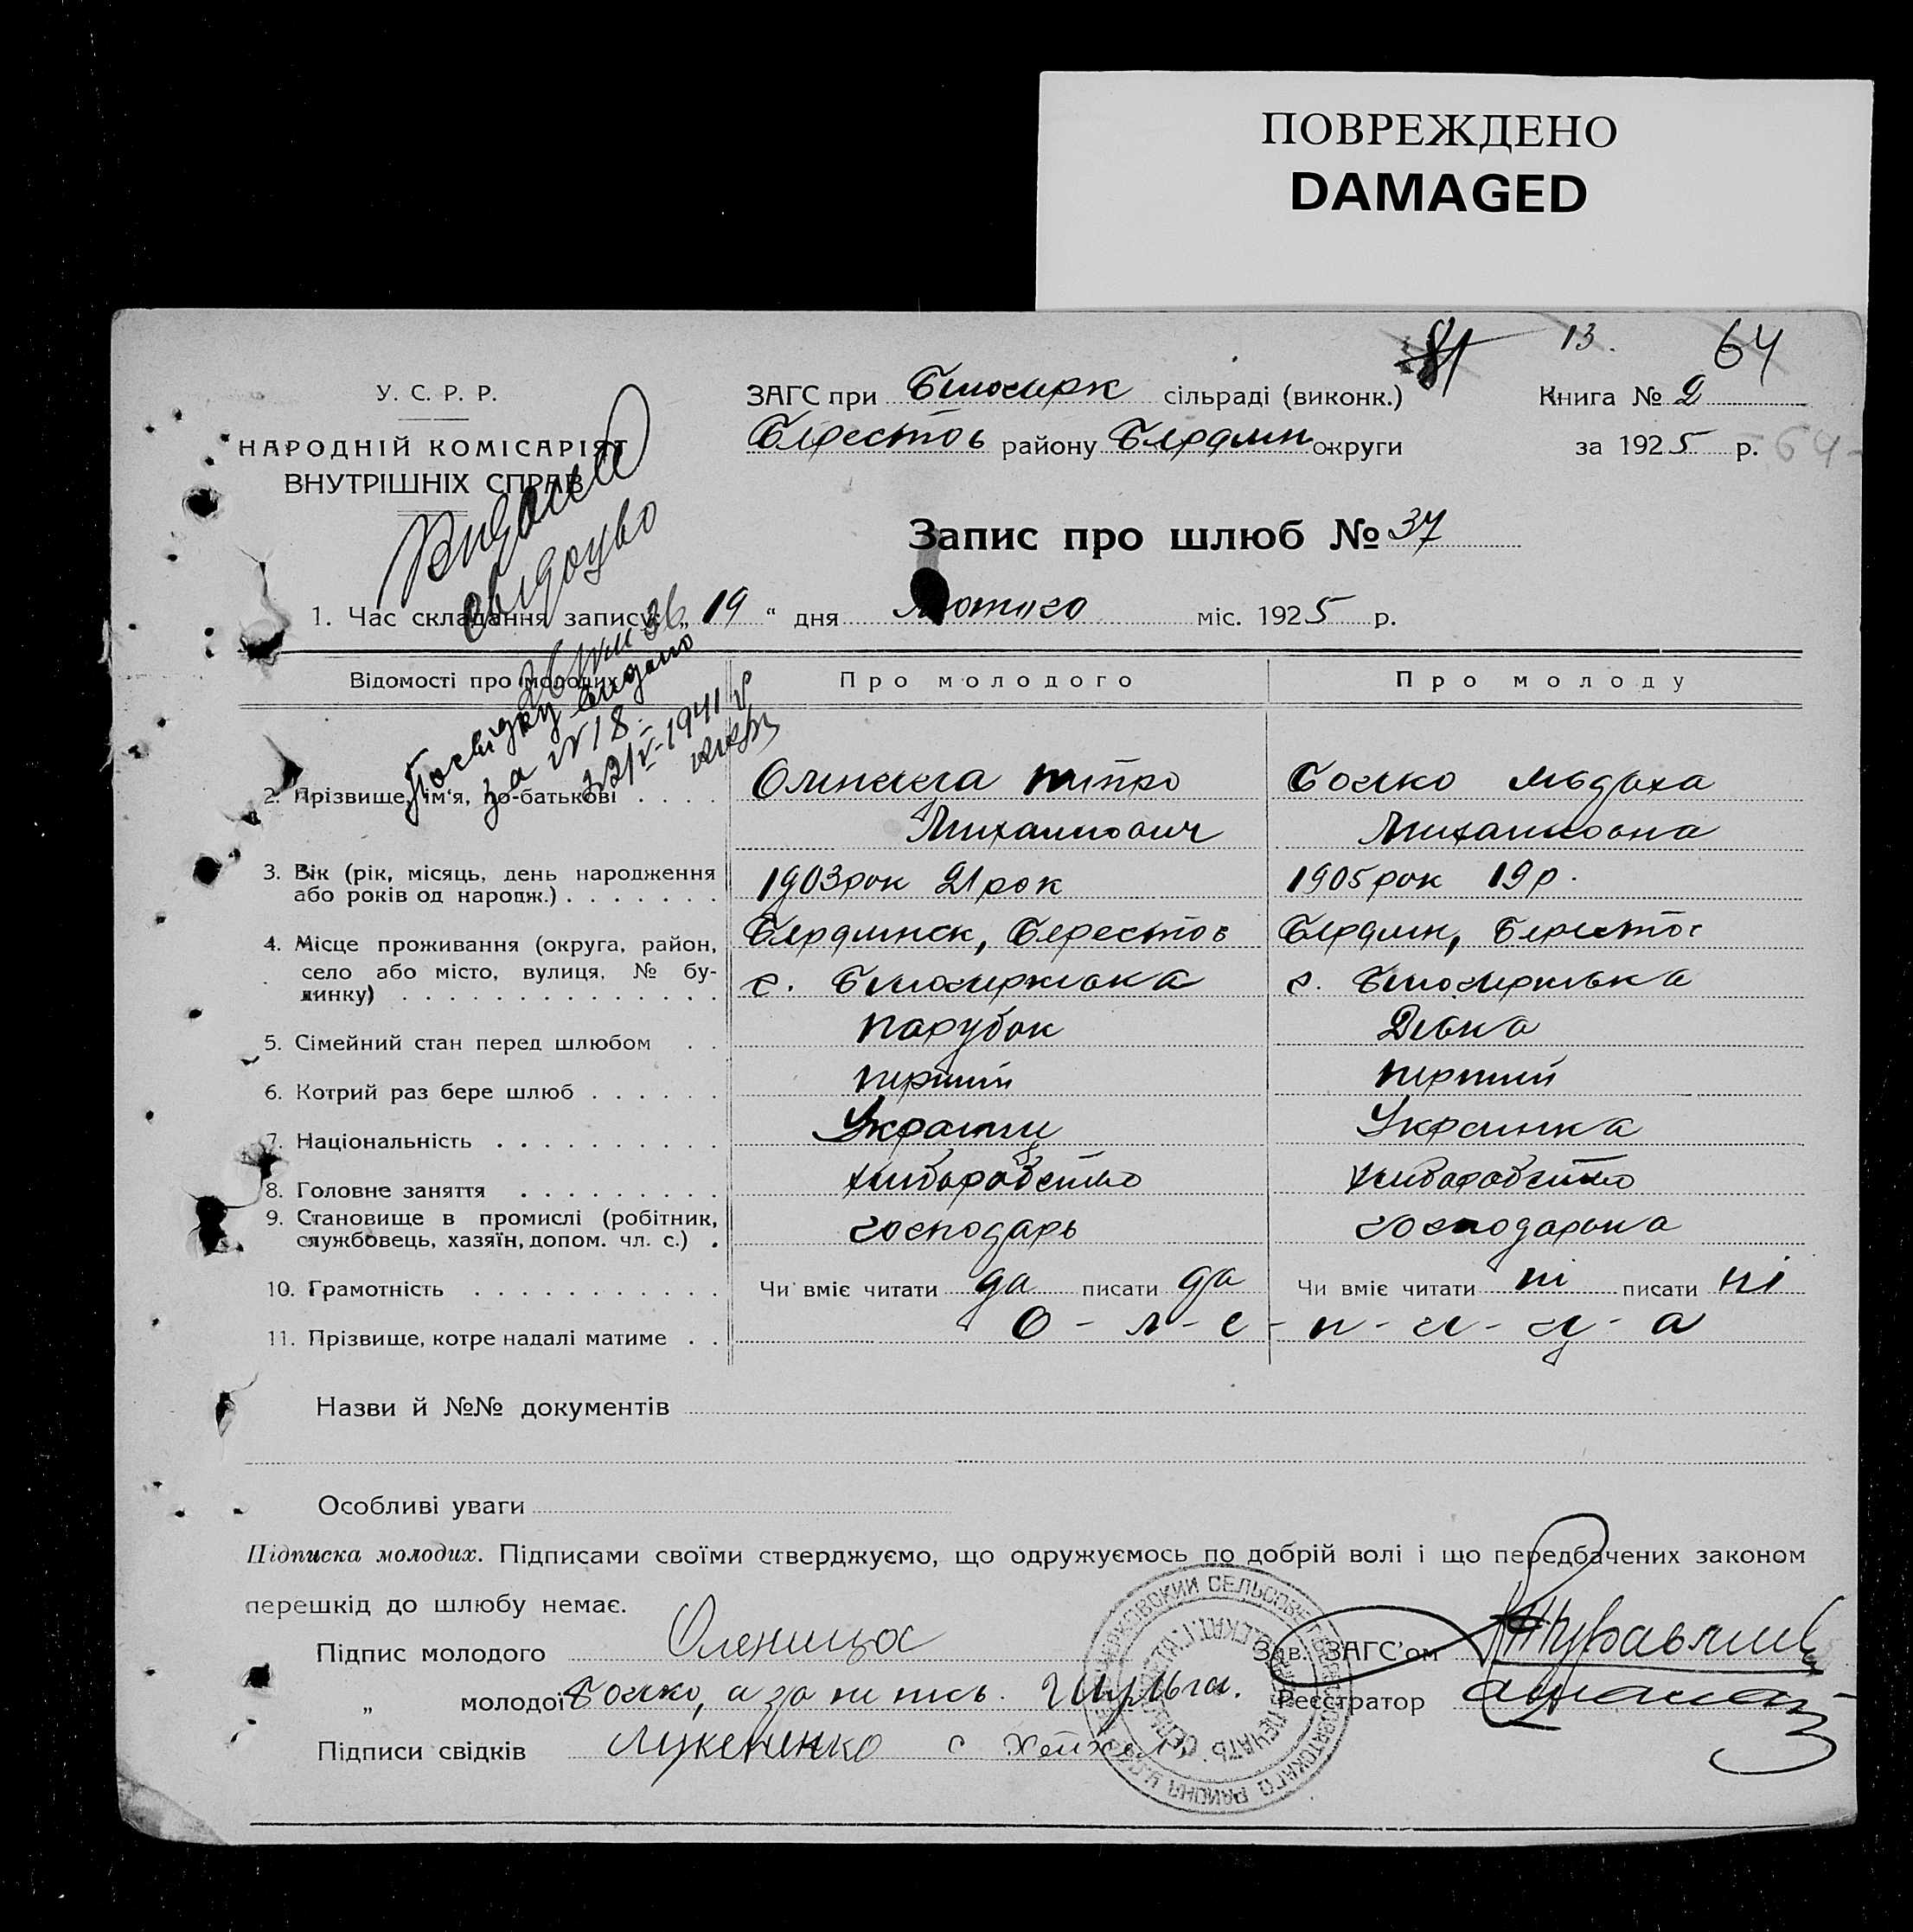 ПОВРЕЖДЕНО
DAMAGED
81 13. 64
У. С. Р. Р.
НАРОДНІЙ КОМІСАРІЯТ
ВНУТРІШНІХ СПРАВ
ЗАГС при Білоцирк сільраді (виконк.)
Берестов району Бердян округи
Книга № 2
за 1925 р. 64
Видано
свідоцтво
Запис про шлюб № 37
1. Час складання запису „ 19 “ дня лютого міс. 1925 р.
Посвідку видано
за № 18
Відомості про молодих Про молодого Про молоду
2. Прізвище, ім‘я, по-батькові . . . .
Михайлович Михайловна
3. Вік (рік, місяць, день народження
або років од народж.) . . . . . . .
1903 рок 21 рок 1905 рок 19 р.
4. Місце проживання (округа, район,
село або місто, вулиця, № бу-
динку) . . . . . . . . . . . . . .
Бердянск, Берестов Бердян, Берестов
с. с.
5. Сімейний стан перед шлюбом . . парубок Дівка
6. Котрий раз бере шлюб . . . . . . перший перший
7. Національність . . . . . . . . . . Українець Українка
8. Головне заняття . . . . . . . . . хліборобство хліборобство
9. Становище в промислі (робітник,
службовець, хазяїн, допом. чл. с.) .
господарь господарька
10. Грамотність . . . . . . . . . . . Чи вміє читати да писати да Чи вміє читати ні писати ні
11. Прізвище, котре надалі матиме . . О-л-е-н-и-ц-а
Назви й №№ документів
Особливі уваги
Підписка молодих. Підписами своїми стверджуємо, що одружуємось по добрій волі і що передбачених законом
перешкід до шлюбу немає.
Підпис молодого Олениця
Зав. ЗАГС'ом
„ молодої а за непись. Шульга.
Реєстратор
Підписи свідків Лукененко